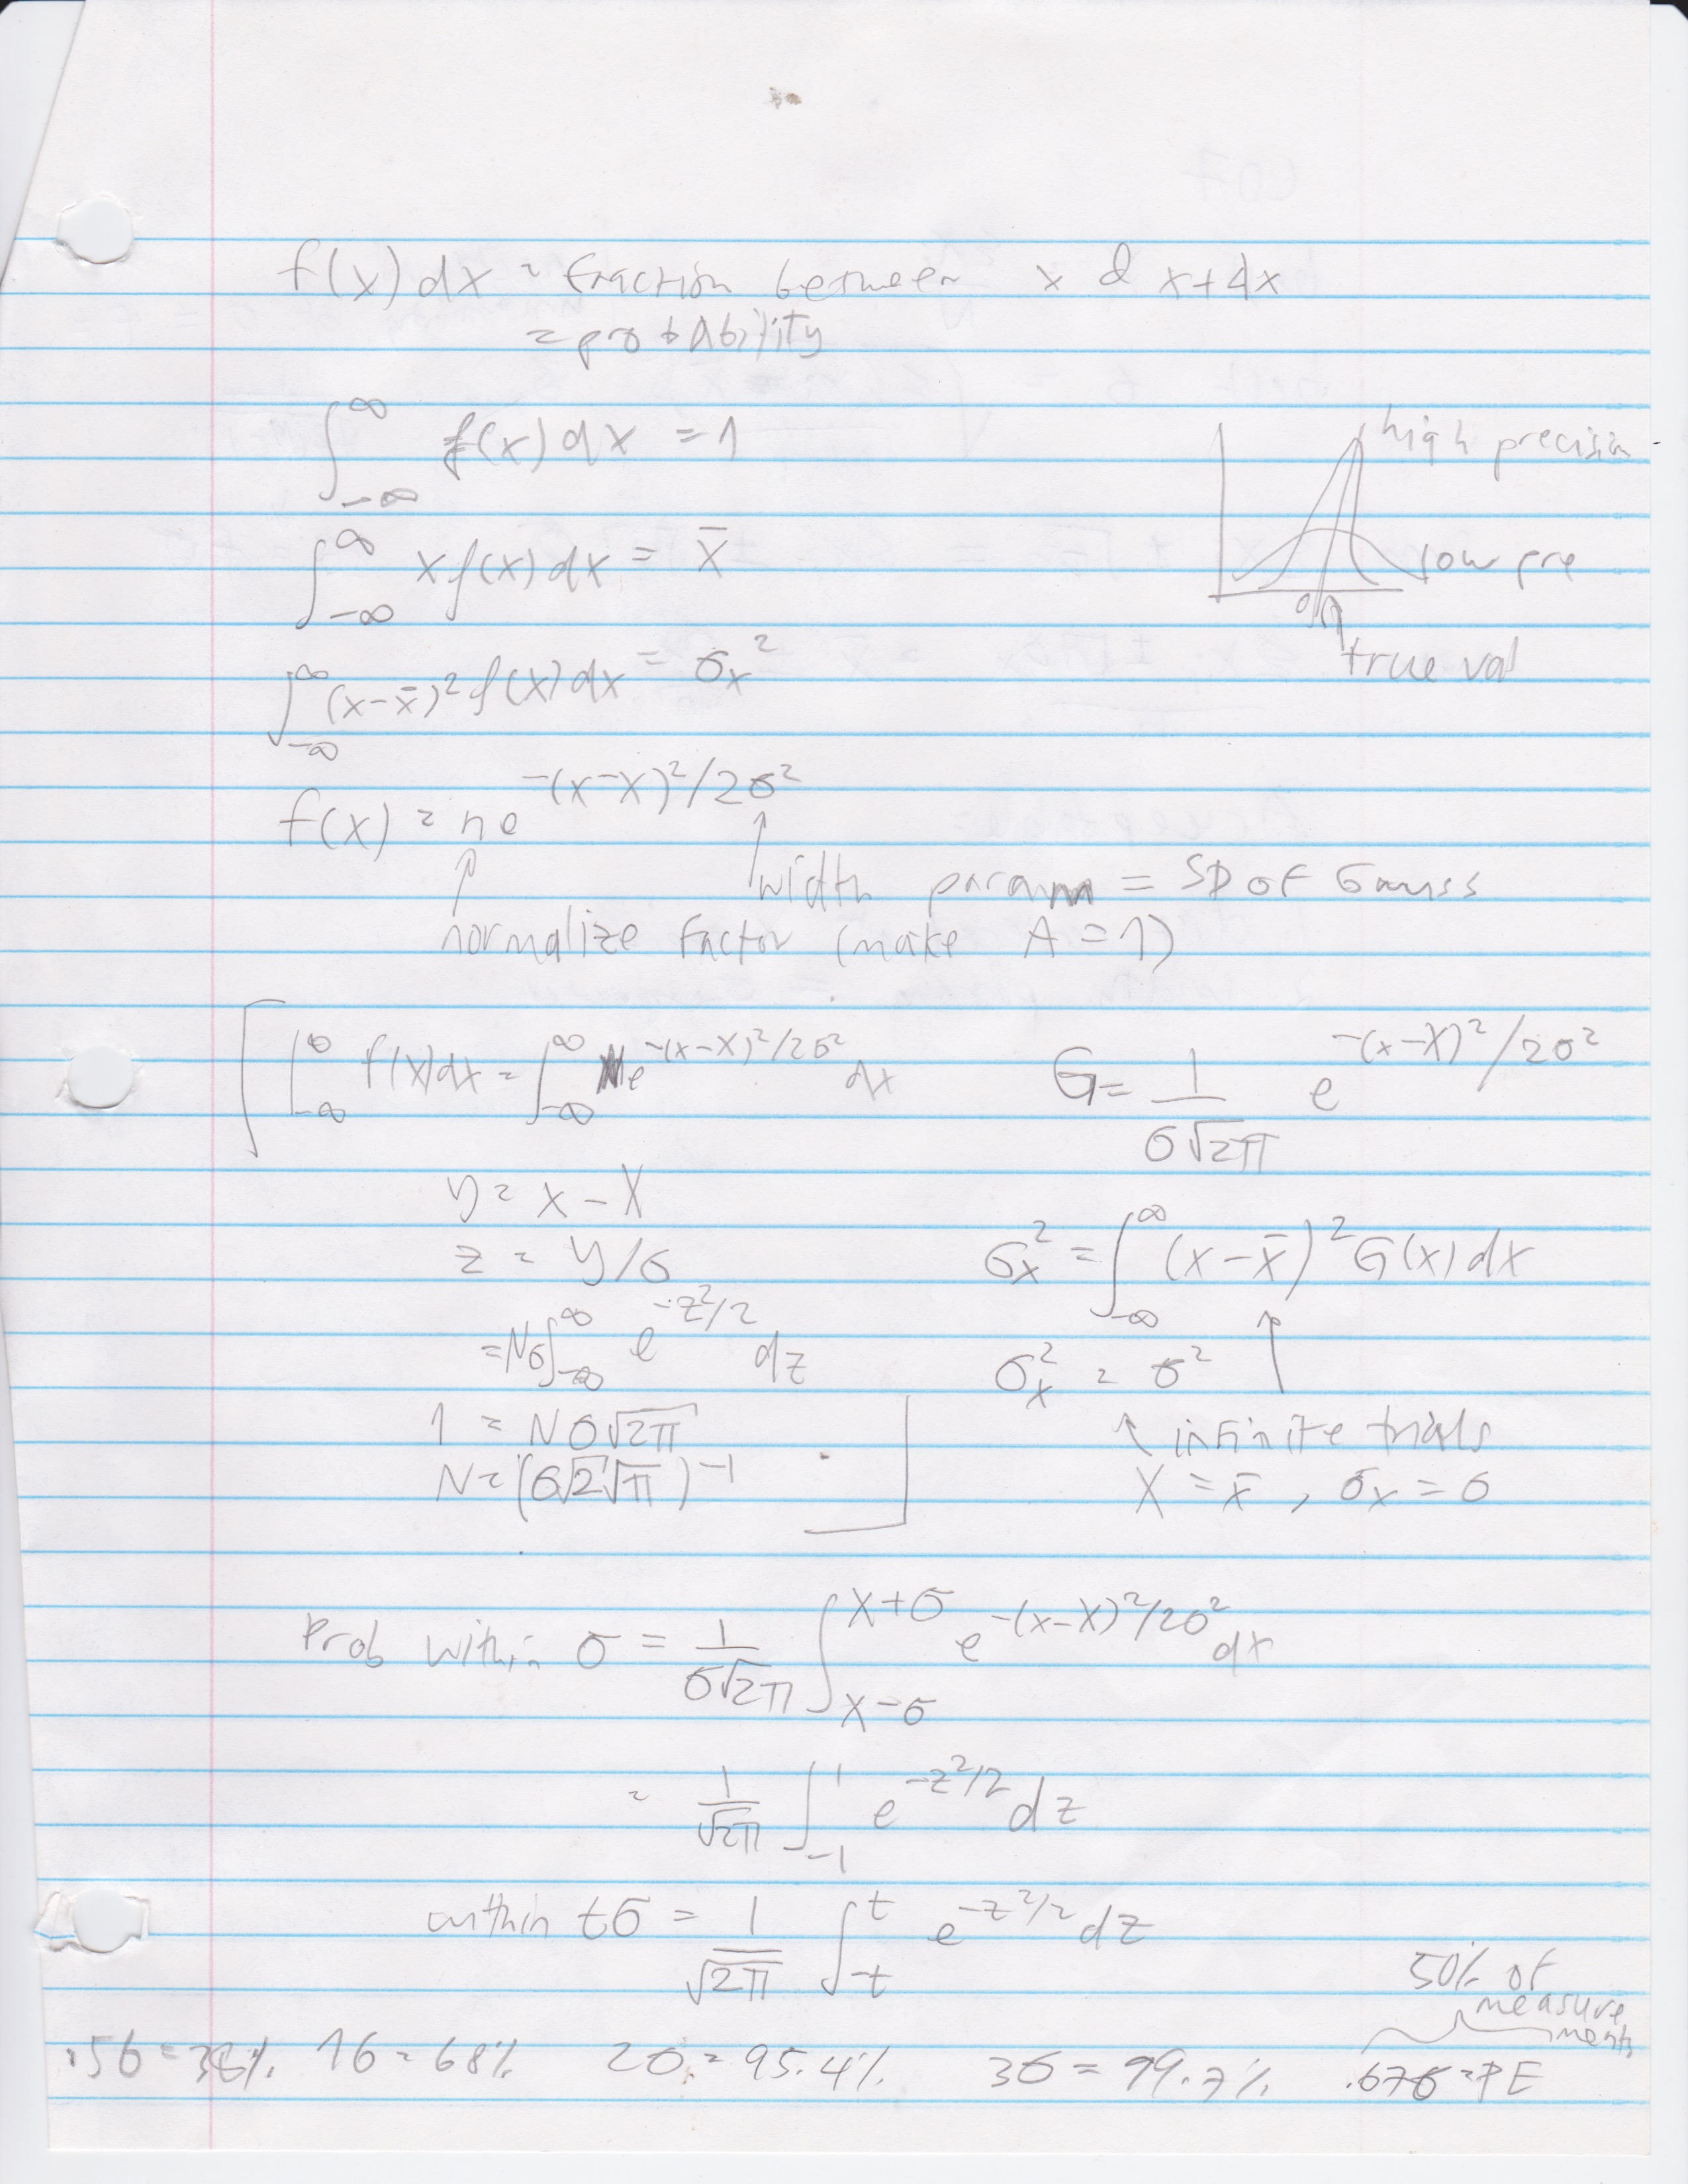 f(x) dx = fraction between x & x+dx
= probability
∫_{-∞}^{∞} f(x) dx = 1
high precision
∫_{-∞}^{∞} x f(x) dx = x̄
low pre
true val
∫_{-∞}^{∞} (x-x̄)² f(x) dx = σₓ²
f(x) = n e^{-(x-X)²/2σ²}
width param = SD of Gauss
normalize factor (make A = 1)
∫_{-∞}^{∞} f(x) dx = ∫_{-∞}^{∞} N e^{-(x-X)²/2σ²} dx
G = 1/(σ√2π) e^{-(x-X)²/2σ²}
y = x - X
z = y/σ
= Nσ ∫_{-∞}^{∞} e^{-z²/2} dz
1 = Nσ√2π
N = (σ√2√π)^{-1}
σₓ² = ∫_{-∞}^{∞} (x-x̄)² G(x) dx
σₓ² = σ²
infinite trials
X = x̄, σₓ = σ
Prob within σ = 1/(σ√2π) ∫_{X-σ}^{X+σ} e^{-(x-X)²/2σ²} dx
= 1/√2π ∫_{-1}^{1} e^{-z²/2} dz
within tσ = 1/√2π ∫_{-t}^{t} e^{-z²/2} dz
50% of
measure
ments
.5σ = 38% 1σ = 68% 2σ = 95.4% 3σ = 99.7% .67σ = PE